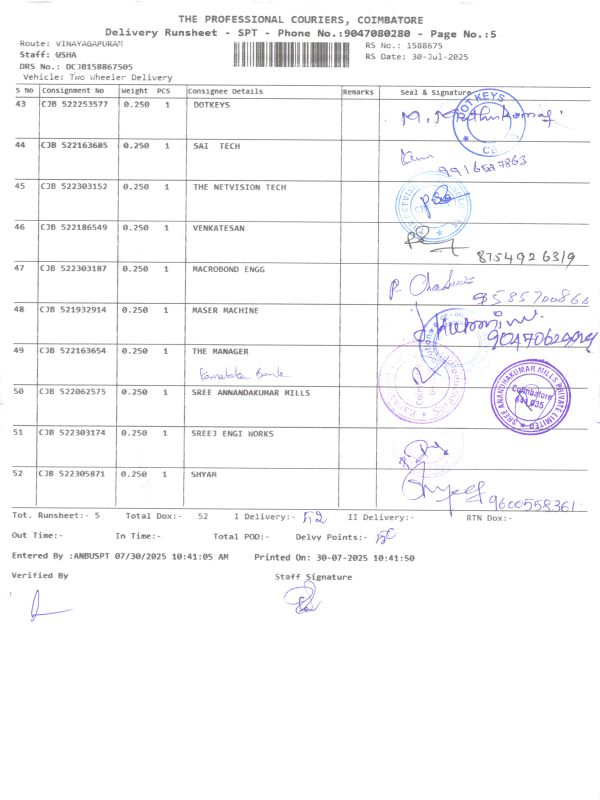 THE PROFESSIONAL COURIERS, COIMBATORE
Delivery Runsheet - SPT - Phone No.:9047080280 - Page No.:5
Route: VINAYAGAPURAM
RS No.: 1588675
Staff: USHA
RS Date: 30-Jul-2025
DRS No.: DCJB158867505
Vehicle: Two Wheeler Delivery
S No Consignment No Weight PCS Consignee Details Remarks Seal & Signature
43 CJB 522253577 0.250 1 DOTKEYS
DOTKEYS
CB
44 CJB 522163685 0.250 1 SAI TECH
9916527863
45 CJB 522303152 0.250 1 THE NETVISION TECH
46 CJB 522186549 0.250 1 VENKATESAN
8754926319
47 CJB 522303187 0.250 1 MACROBOND ENGG
9585700860
48 CJB 521932914 0.250 1 MASER MACHINE
49 CJB 522163654 0.250 1 THE MANAGER
Karnataka Bank
50 CJB 522062575 0.250 1 SREE ANNANDAKUMAR MILLS
SREE ANANDHAKUMAR MILLS PRIVATE LIMITED
Coimbatore
641 035
51 CJB 522303174 0.250 1 SREEJ ENGI WORKS
52 CJB 522305871 0.250 1 SHYAM
9600558361
Tot. Runsheet:- 5 Total Dox:- 52 I Delivery:- 52 II Delivery:- RTN Dox:-
Out Time:- In Time:- Total POD:- Delvy Points:- 50
Entered By :ANBUSPT 07/30/2025 10:41:05 AM Printed On: 30-07-2025 10:41:50
Verified By Staff Signature